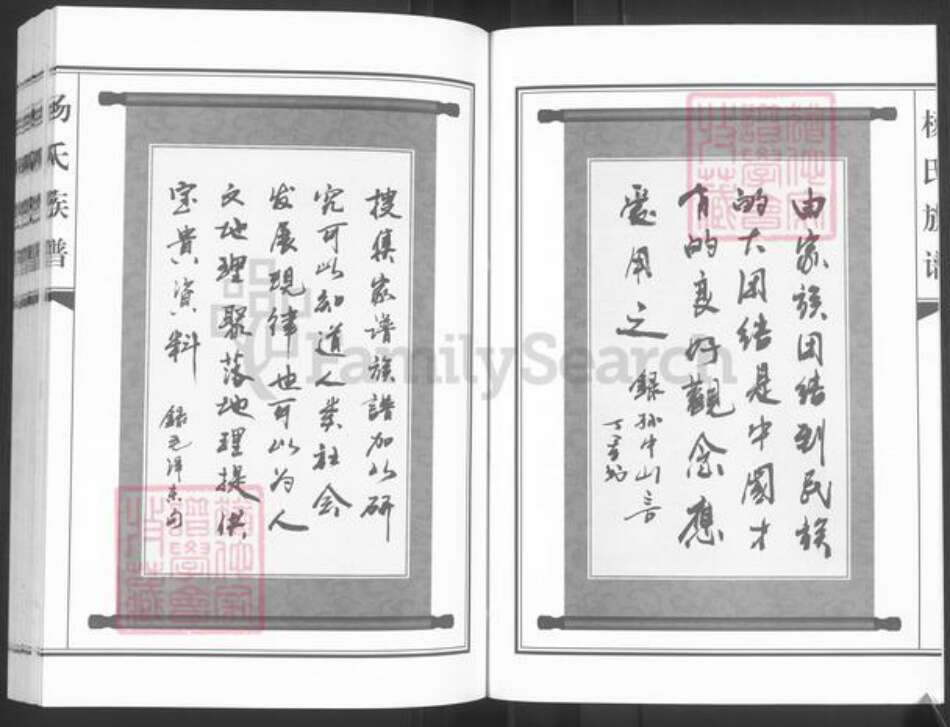 由家族团结到民族
的大团结是中國才
有的良好觀念應
爱用之
錄孙中山言
楊氏族譜
搜集家谱族譜加以研
究可以知道人类社会
发展规律也可以为人
文地理聚落地理提供
宝貴資料
録毛泽东句
杨氏族譜
FamilySearch